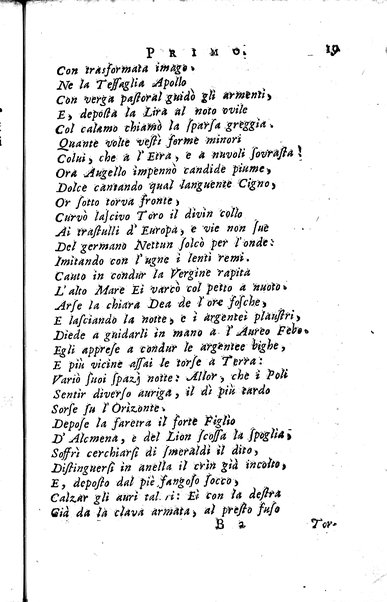 PRIMO. 19
Con trasformata imago.
Ne la Tessaglia Apollo
Con verga pastoral guidò gli armenti,
E, deposta la Lira al noto ovile
Col calamo chiamò la sparsa greggia.
Quante volte vestì forme minori
Colui, che a l'Etra, e a nuvoli sovrasta!
Ora Augello impennò candide piume,
Dolce cantando qual languente Cigno,
Or sotto torva fronte,
Curvò lascivo Toro il divin collo
Ai trastulli d'Europa, e vie non sue
Del germano Nettun solcò per l'onde:
Imitando con l'ugne i lenti remi.
Cauto in condur la Vergine rapita
L'alto Mare Ei varcò col petto a nuoto.
Arse la chiara Dea de l'ore fosche,
E lasciando la notte, e i argentei plaustri,
Diede a guidarli in mano a l'Aureo Febo.
Egli apprese a condur le argentee bighe,
E più vicine assai le torse a Terra:
Variò suoi spazj notte: Allor, che i Poli
Sentir diverso auriga, il dì più tardo
Sorse su l'Orizonte.
Depose la faretra il forte Figlio
D'Alcmena, e del Lion scossa la spoglia,
Soffrì cerchiarsi di smeraldi il dito,
Distinguersi in anella il crin già incolto,
E, deposto dal piè fangoso socco,
Calzar gli auri talari: Ei con la destra
Già da la clava armata, al presto fuso
B 2 Tor-